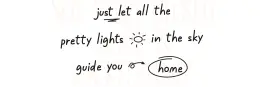 just let all the
pretty lights in the sky
guide you home